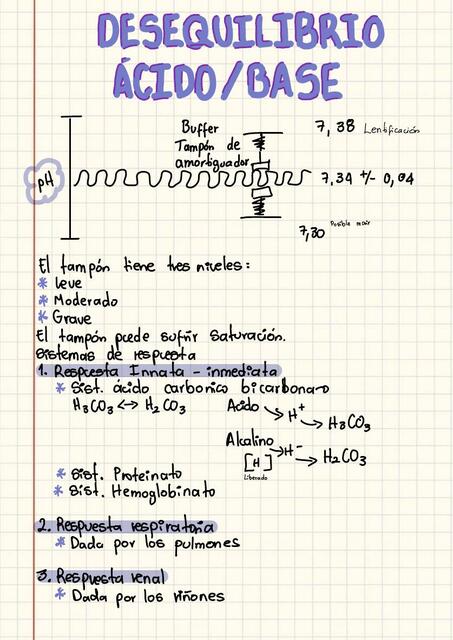 DESEQUILIBRIO
ÁCIDO/BASE
Buffer
Tampón de
amortiguador
7,38 Lentificación
pH
7,34 +/- 0,04
7,30 Posible morir
El tampón tiene tres niveles:
* Leve
* Moderado
* Grave
El tampón puede sufrir saturación.
Sistemas de respuesta
1. Respuesta Innata - inmediata
* Sist. ácido carbonico bicarbonato
H3CO3 <-> H2CO3
Acido → H+ → H3CO3
Alcalino → H- → H2CO3
[H]
Liberado
* Sist. Proteinato
* Sist. Hemoglobinato
2. Respuesta respiratoria
* Dada por los pulmones
3. Respuesta renal
* Dada por los riñones